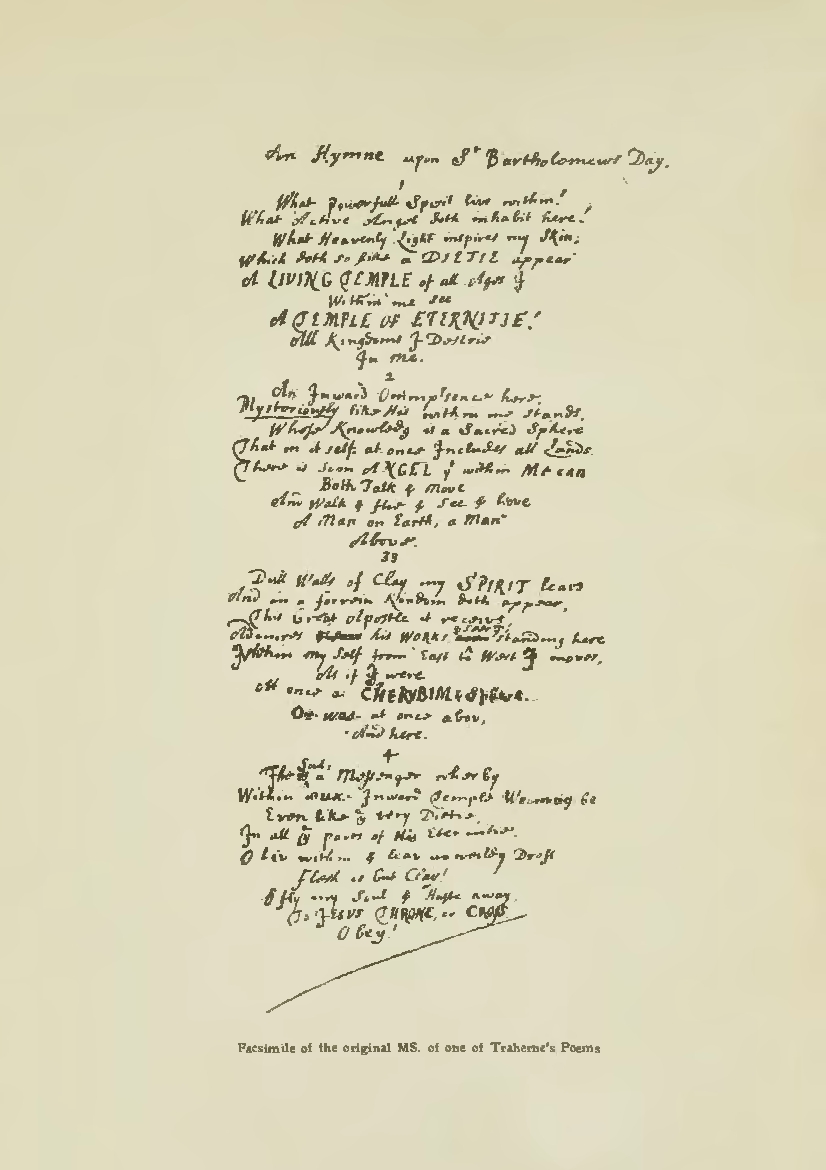 An Hymne upon St Bartholomews Day.
1
What powerfull Spirit livs within!
What Active Angel doth inhabit here!
What Heavenly Light inspires my Skin;
Which doth so like a DIETIE appear
A LIVING TEMPLE of all Ages I
Within me see
A TEMPLE OF ETERNITIE!
All Kingdoms I Descrie
In me.
2
An Inward Omnipresence here,
Mysteriously like His within me stands.
Whose Knowledg is a Sacred Sphere
That in it self at once Includes all Lands.
There is som ANGEL yt within Me can
Both Talk & Move
And Walk & flie & See & Love
A Man on Earth, a Man
Above.
3
Dull Walls of Clay my SPIRIT leavs
And in a forrein Kingdom doth appear,
This Great Apostle it receivs
Admires his WORKS & sees, standing here
Within my Self from East to West I mov,
As if I were
At once a CHERUBIM & Sphere.
Or was at once abov,
And here.
4
The Soul's a Messenger wherby
Within our Inward Temple We may be
Even like ye very Dietie,
In all ye parts of His Eternitie.
O liv within & leav unweildy Dross
Flesh is but Clay!
O fly my Soul & Haste away
To JESUS THRONE, or CROSS
Obey!
Facsimile of the original MS. of one of Traherne's Poems